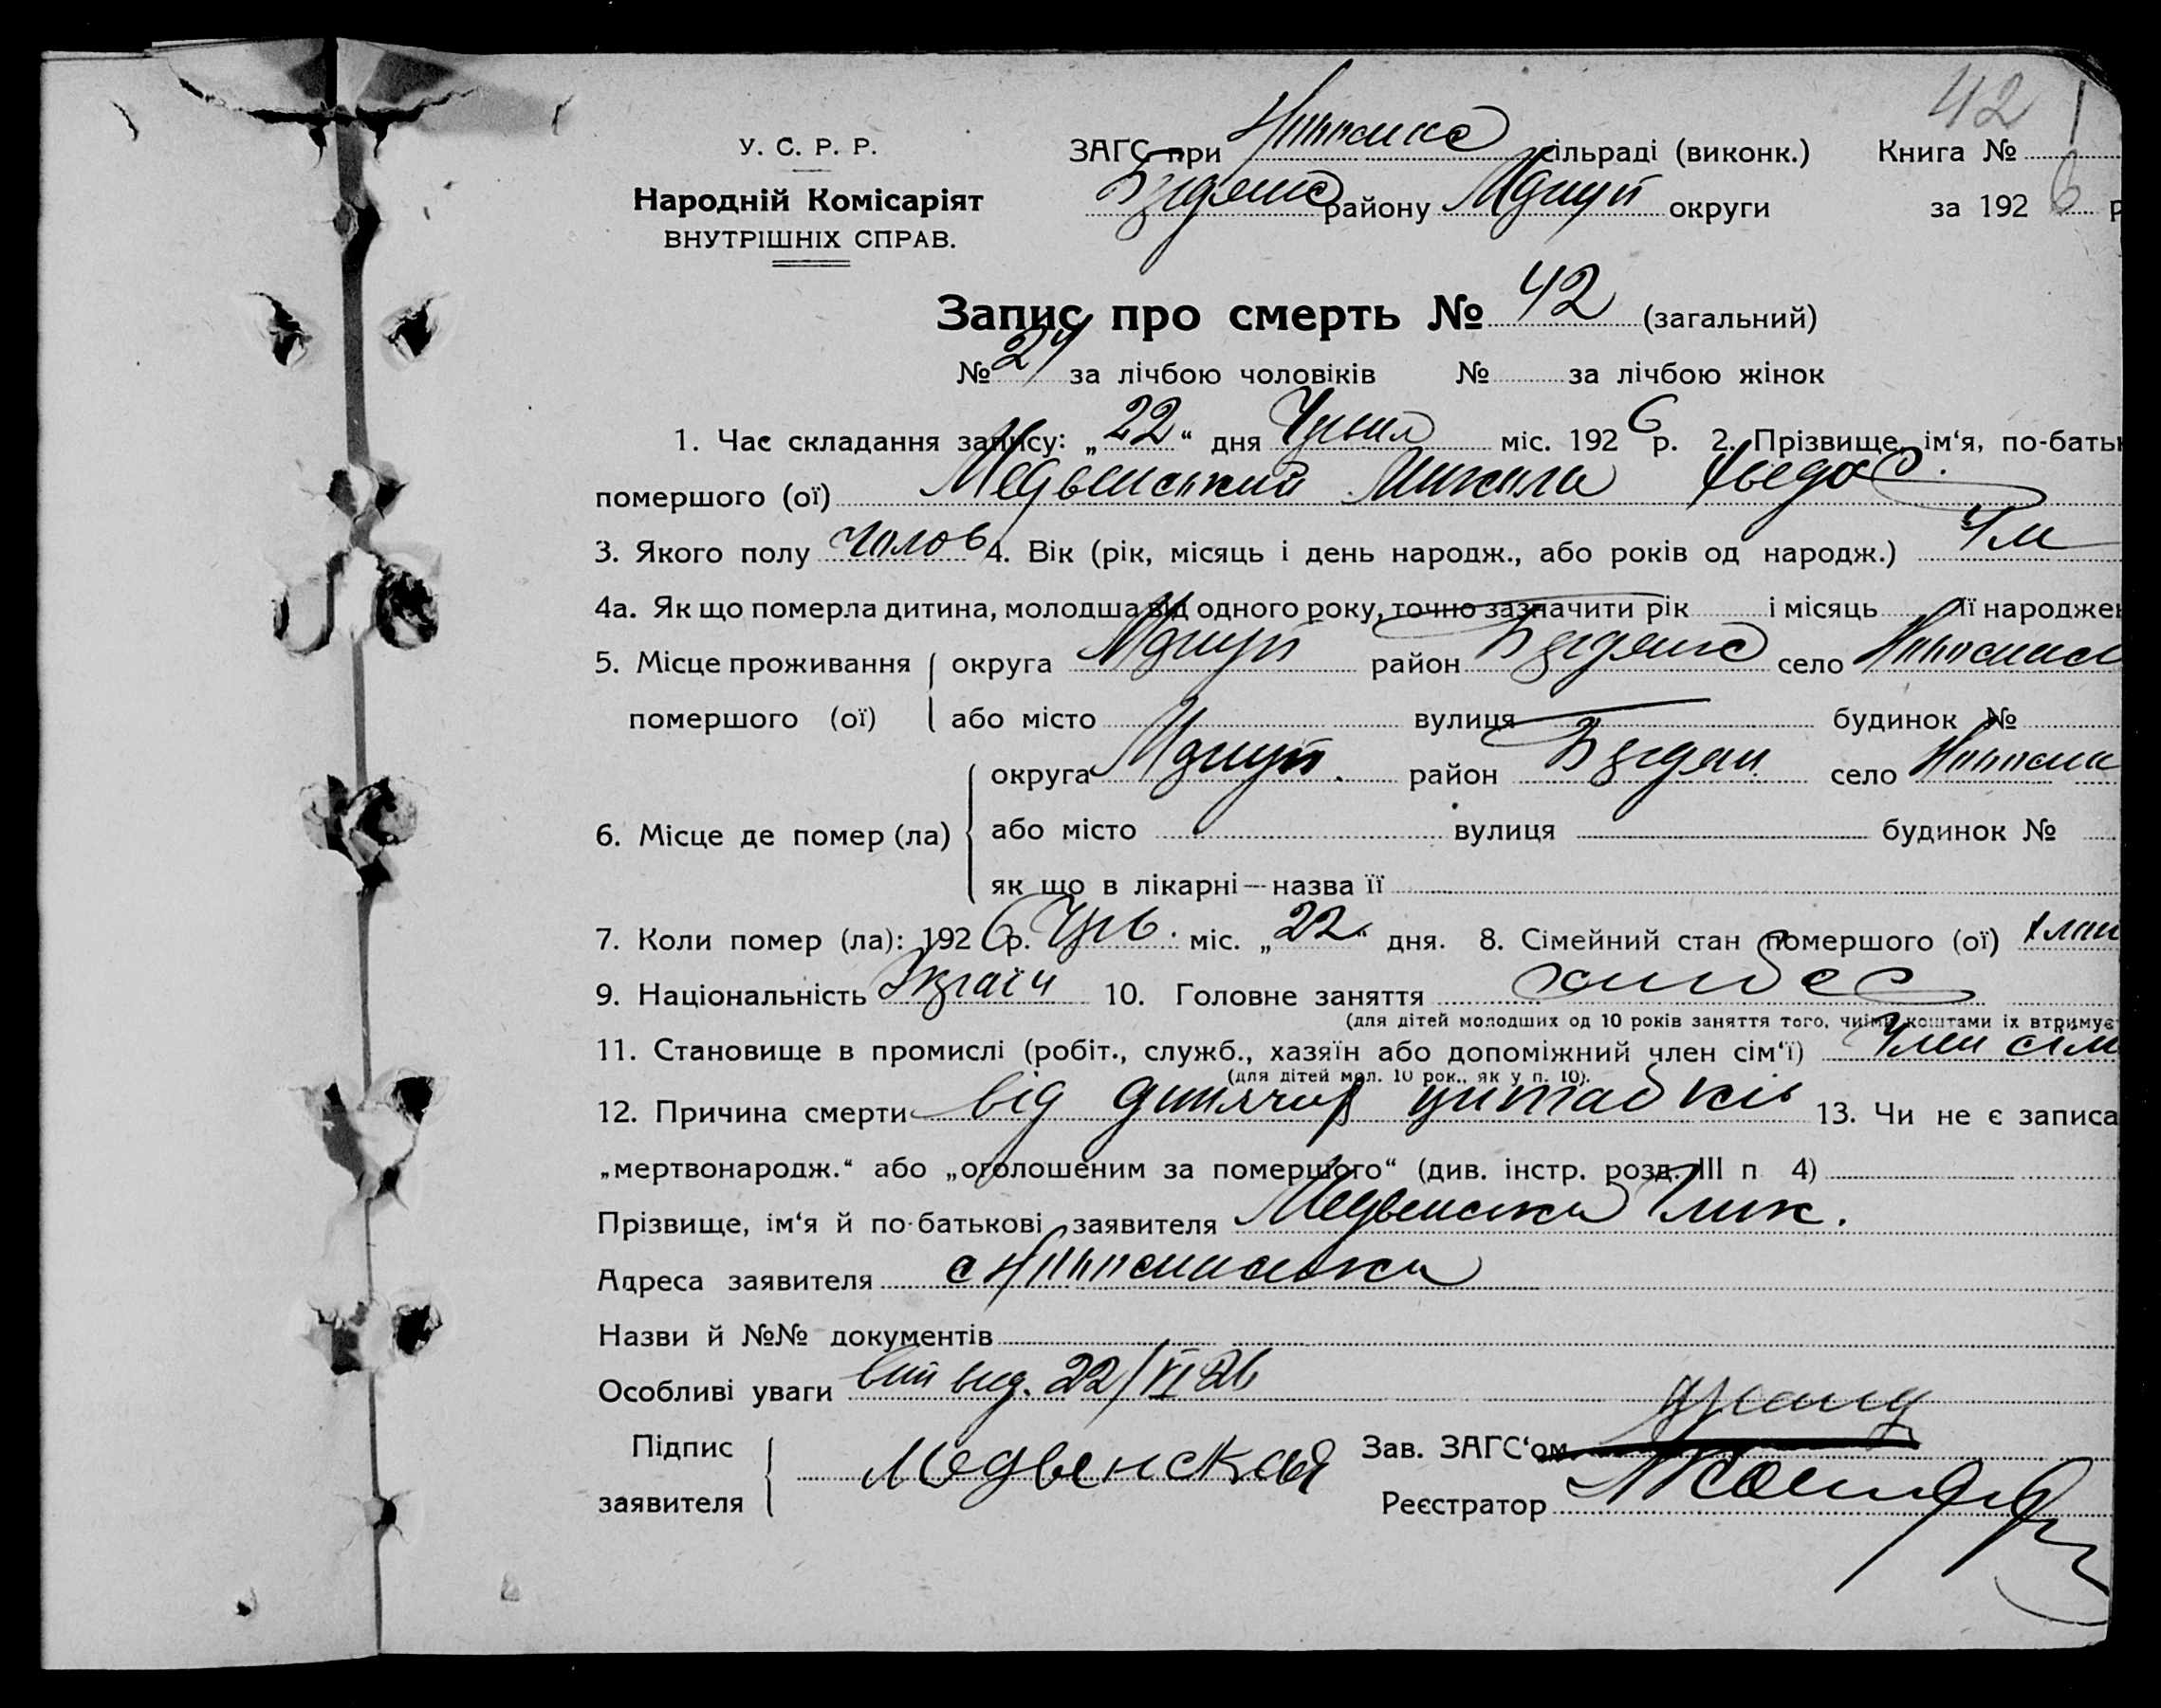 42
У. С. Р. Р.
Народній Комісаріят
ВНУТРІШНІХ СПРАВ.
ЗАГС при сільраді (виконк.) Книга № 1
району округи за 1926 р
Запис про смерть № 42 (загальний)
№ 24 за лічбою чоловіків № за лічбою жінок
1. Час складання запису: „22“ дня Червня міс. 1926 р. 2. Прізвище, ім‘я, по-батьк
помершого (ої) Медвенський Микола Федос.
3. Якого полу чолов 4. Вік (рік, місяць і день народж., або років од народж.) 4 м
4а. Як що померла дитина, молодша від одного року, точно зазначити рік і місяць її народжен
5. Місце проживання округа район село
помершого (ої) або місто вулиця будинок №
округа район село
6. Місце де помер (ла) або місто вулиця будинок №
як що в лікарні—назва її
7. Коли помер (ла): 1926 р. Черв. міс. „22“ дня. 8. Сімейний стан помершого (ої)
9. Національність Україн 10. Головне заняття хліб
(для дітей молодших од 10 років заняття того, чиїми коштами їх втримує
11. Становище в промислі (робіт., служб., хазяїн або допоміжний член сім‘ї) Член сім
(для дітей мол. 10 рок., як у п. 10).
12. Причина смерти від дитячих 13. Чи не є записа
„мертвонародж.“ або „оголошеним за помершого“ (див. інстр. розд. III п 4)
Прізвище, ім‘я й по-батькові заявителя Медвенська
Адреса заявителя с
Назви й №№ документів
Особливі уваги вид. 22/VI 26
Підпис
заявителя Медвенская
Зав. ЗАГС‘ом
Реєстратор